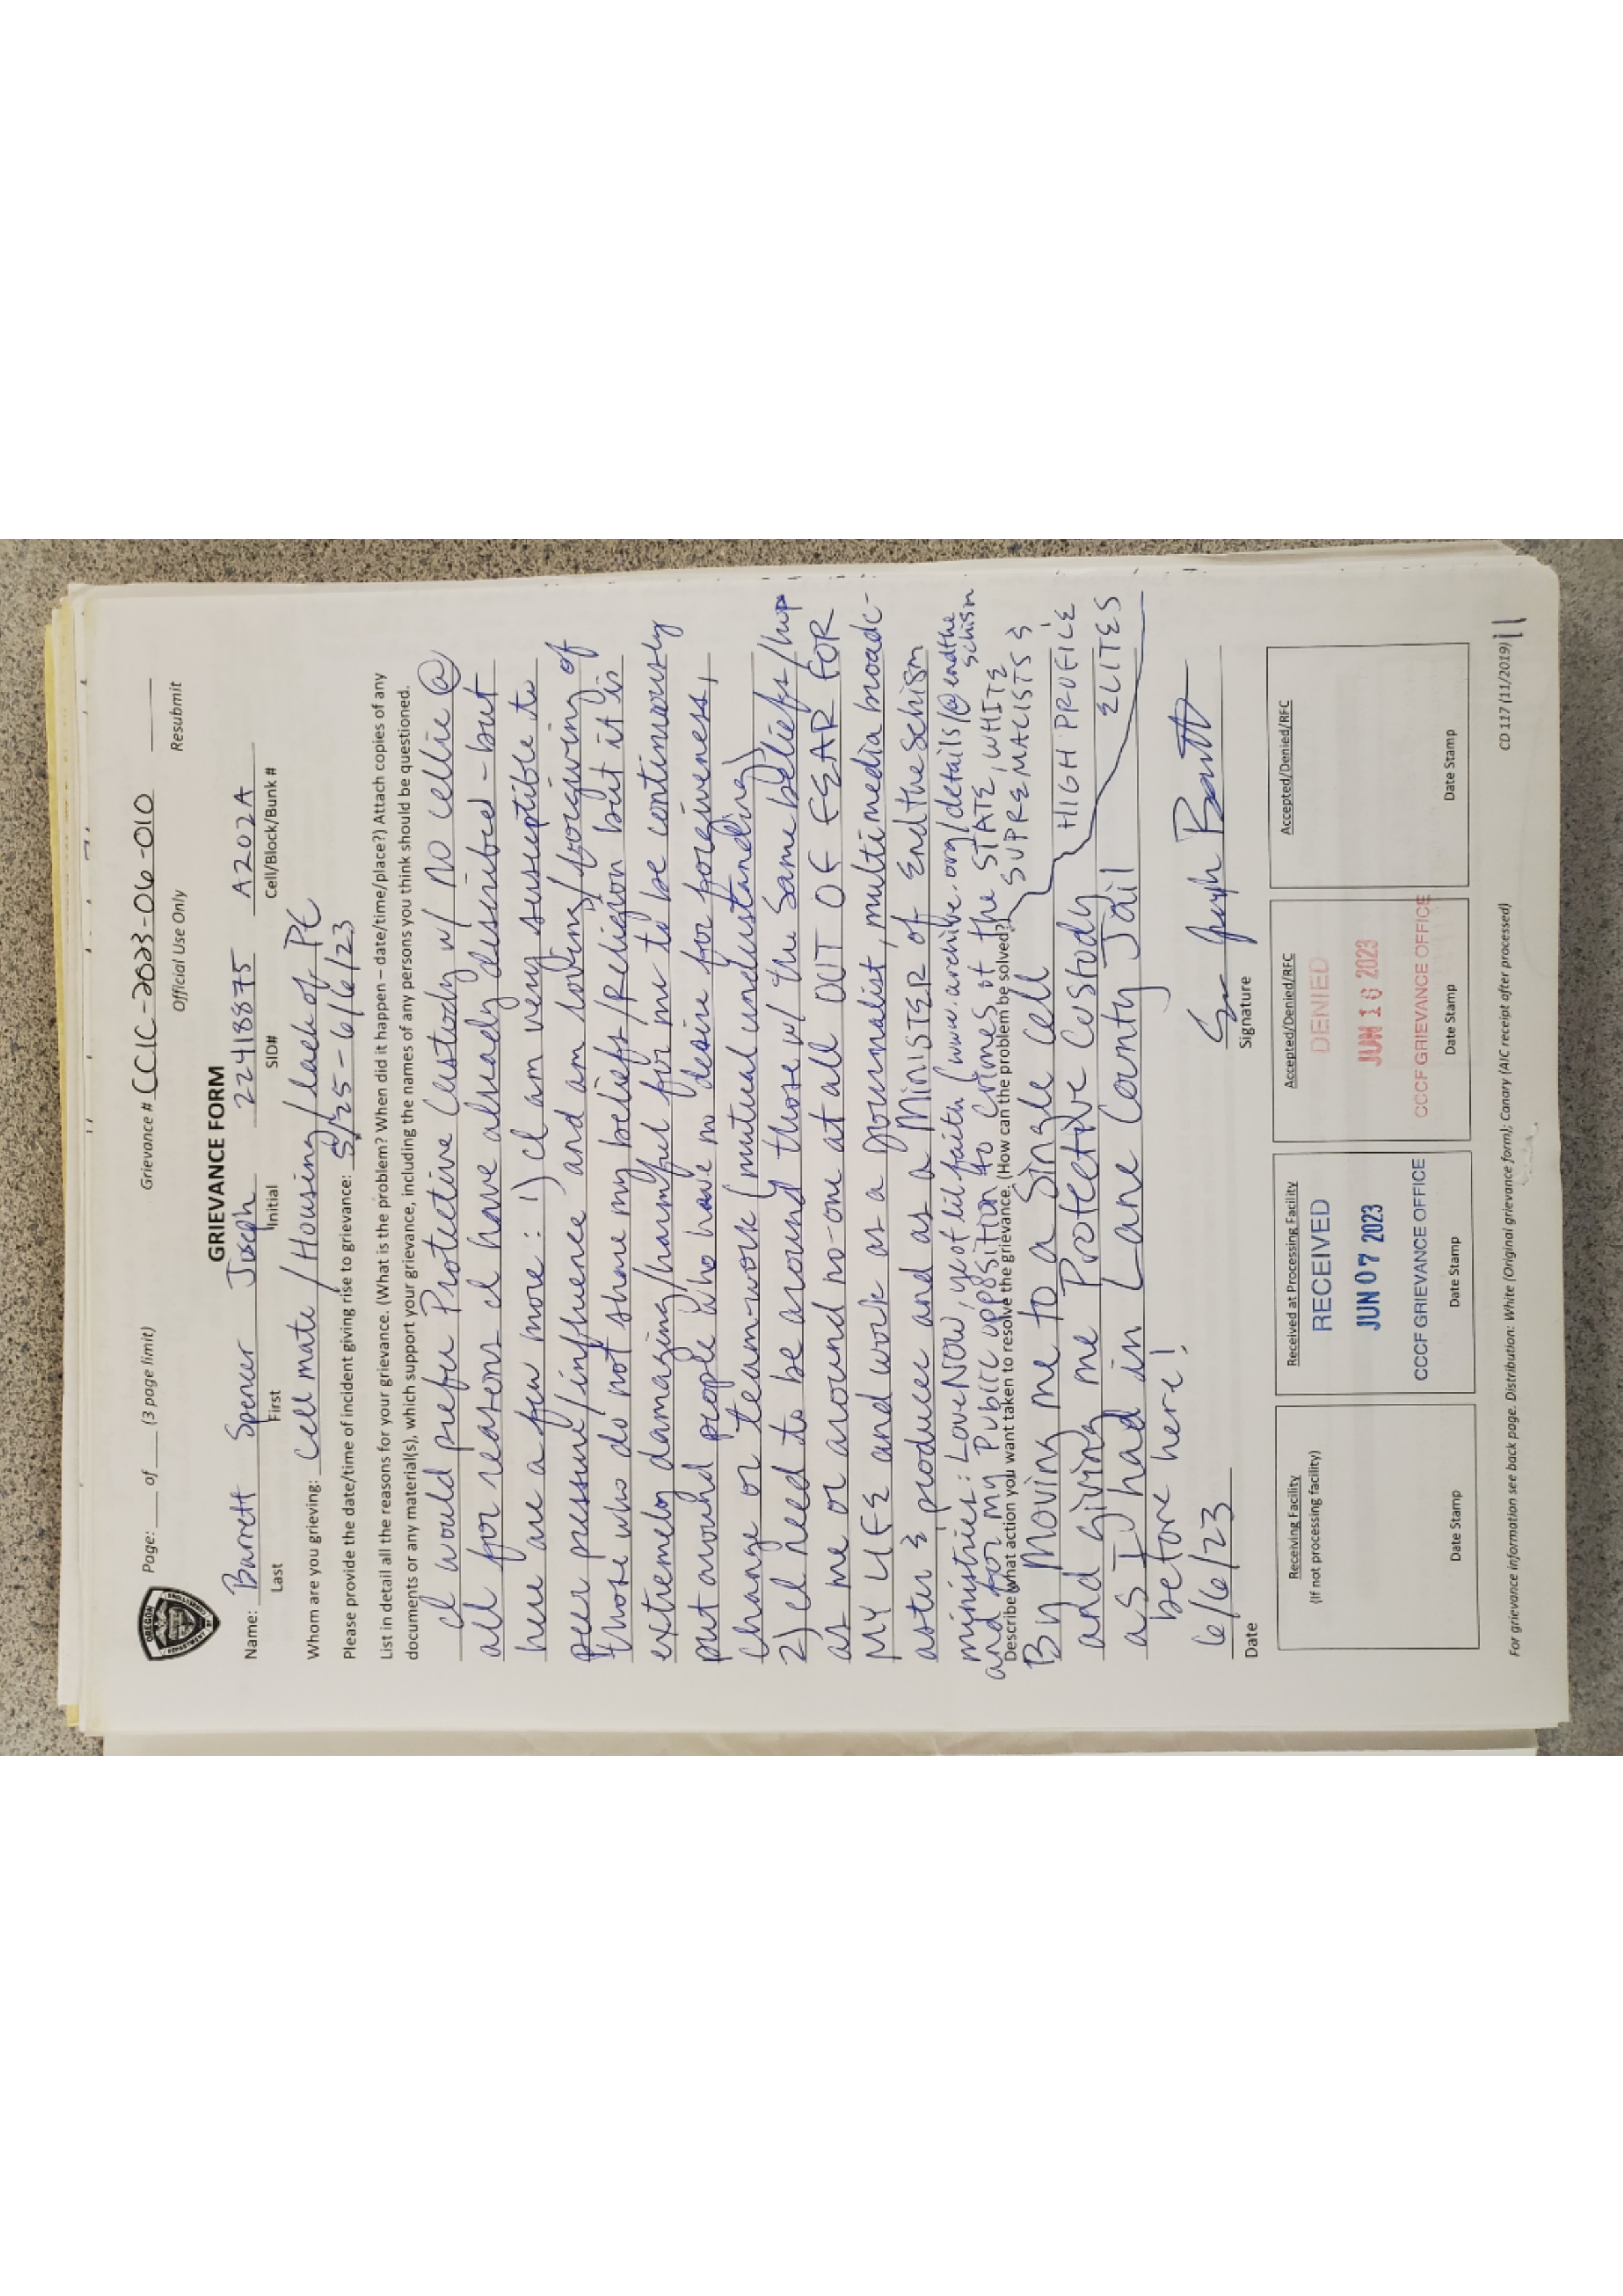 Page: ____ of ____ (3 page limit) Grievance # CCIC-2023-06-010
Official Use Only Resubmit
OREGON
DEPARTMENT OF
CORRECTIONS
GRIEVANCE FORM
Name: Barrett Spencer Joseph 22418875 A202A
Last First Initial SID# Cell/Block/Bunk #
Whom are you grieving: Cell mate / Housing / lack of PC
Please provide the date/time of incident giving rise to grievance: 5/25 - 6/6/23
List in detail all the reasons for your grievance. (What is the problem? When did it happen – date/time/place?) Attach copies of any
documents or any material(s), which support your grievance, including the names of any persons you think should be questioned.
I would prefer Protective Custody w/ No cellie @
all for reasons I have already described - but
here are a few more: 1) I am very susceptible to
peer pressure/influence and am loving/forgiving of
those who do not share my beliefs/Religion but it is
extremely damaging/harmful for me to be continuously
put around people who have no desire for forgiveness,
change or team-work (mutual understanding)
2) I need to be around those w/ the same beliefs/
as me or around no-one at all OUT OF FEAR FOR
MY LIFE and work as a journalist, multimedia broadc-
aster & producer and as a MiniSTER of EndtheSchism
ministries: LoveNOW, ye of lil faith (www.archive.org/details/@endthe
schism
and for my Public opposition to crimes of the STATE, WHITE
SUPREMACISTS &
HIGH PROFILE
ELITES
Describe what action you want taken to resolve the grievance. (How can the problem be solved?)
By Moving me to a Single cell
and giving me Protective Custody
as I had in Lane County Jail
before here!
6/6/23
Date Signature
Receiving Facility
(If not processing facility)
Date Stamp
Received at Processing Facility
RECEIVED
JUN 07 2023
CCCF GRIEVANCE OFFICE
Date Stamp
Accepted/Denied/RFC
DENIED
JUN 16 2023
CCCF GRIEVANCE OFFICE
Date Stamp
Accepted/Denied/RFC
Date Stamp
For grievance information see back page. Distribution: White (Original grievance form); Canary (AIC receipt after processed) CD 117 (11/2019)